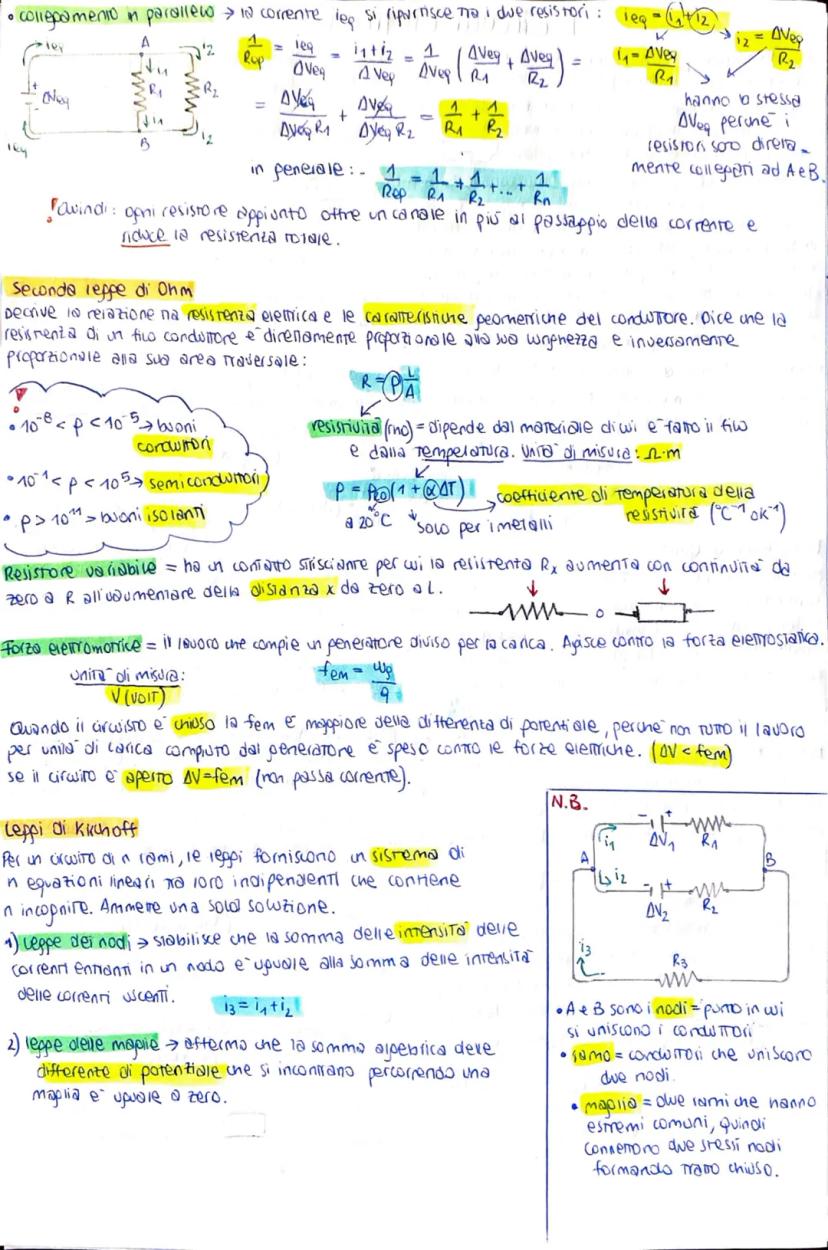 • collegamento in parallelo → la corrente ieq si ripartisce tra i due resistori : ieq = i1 + i2
i1 = ΔVeq/R1
i2 = ΔVeq/R2
hanno la stessa
ΔVeq perchè i
resistori sono diretta-
mente collegati ad A e B.
ieq A i2
ΔVeq i1 R1 R2
i1
ieq B i2
1/Req = ieq/ΔVeq = i1+i2/ΔVeq = 1/ΔVeq (ΔVeq/R1 + ΔVeq/R2) =
= ΔVeq/ΔVeq R1 + ΔVeq/ΔVeq R2 = 1/R1 + 1/R2
in generale :- 1/Req = 1/R1 + 1/R2 + ... + 1/Rn
! Quindi : ogni resistore aggiunto offre un canale in più al passaggio della corrente e
riduce la resistenza totale.
Seconda legge di Ohm
Descrive la relazione tra resistenza elettrica e le caratteristiche geometriche del conduttore. Dice che la
resistenza di un filo conduttore è direttamente proporzionale alla sua lunghezza e inversamente
proporzionale alla sua area trasversale :
R = ρ L/A
!
• 10⁻⁸ < ρ < 10⁻⁵ → buoni
conduttori
• 10⁻¹ < ρ < 10⁵ → semiconduttori
• ρ > 10¹¹ → buoni isolanti
resistività (rho) = dipende dal materiale di cui è fatto il filo
e dalla temperatura. Unità di misura : Ω·m
ρ = ρ20 (1 + αΔT) → coefficiente di temperatura della
resistività (°C⁻¹ o K⁻¹)
a 20°C solo per i metalli
Resistore variabile = ha un contatto strisciante per cui la resistenza Rx aumenta con continuità da
zero a R all'aumentare della distanza x da zero a L.
o
Forza elettromotrice = il lavoro che compie un generatore diviso per la carica. Agisce contro la forza elettrostatica.
unità di misura :
V (VOLT)
fem = Wg/q
Quando il circuito è chiuso la fem è maggiore della differenza di potenziale, perchè non tutto il lavoro
per unità di carica compiuto dal generatore è speso contro le forze elettriche. (ΔV < fem)
se il circuito è aperto ΔV = fem (non passa corrente).
Leggi di Kirchoff
Per un circuito di n rami, le leggi forniscono un sistema di
n equazioni lineari tra loro indipendenti che contiene
n incognite. Ammette una sola soluzione.
1) legge dei nodi → stabilisce che la somma delle intensità delle
correnti entranti in un nodo è uguale alla somma delle intensità
delle correnti uscenti. i3 = i1 + i2
2) legge delle maglie → afferma che la somma algebrica delle
differenze di potenziale che si incontrano percorrendo una
maglia è uguale a zero.
N.B.
- +
i1 ΔV1 R1
A B
i2 - +
ΔV2 R2
i3 R3
• A e B sono i nodi = punto in cui
si uniscono i conduttori
• ramo = conduttori che uniscono
due nodi.
• maglia = due rami che hanno
estremi comuni, quindi
connettono due stessi nodi
formando tratto chiuso.